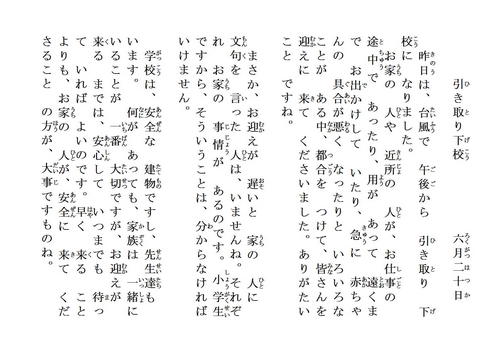 引き取り下校　六月二十日
昨日は、台風で　午後から　引き取り　下
校に　なりました。
お家の　人や　近所の　人が、お仕事の
途中で　あったり、用が　あって　遠くま
で　お出かけして　いたり、急に　赤ちゃ
んの　具合が悪く　なったりと　いろいろな
ことが　ある中、都合を　つけて、皆さんを
迎えに　来て　くださいました。ありがたい
こと　ですね。
まさか、お迎えが　遅いと　家の　人に
文句を　言った　人は　いませんね。それぞ
れ　お家の　事情が　あるのです。小学生
ですから、そういうことは、分からなければ
いけません。
学校は、安全な　建物ですし、先生達も
います。　何が　あっても、家族は　一緒に
いることが　一番　大切ですが、お迎えが
来る　までは、安心して　いつまでも　待っ
て　いれば　よいのです。早く　来る　こと
よりも、お家の　人が、安全に　来て　くだ
さること　の方が、大事ですものね。